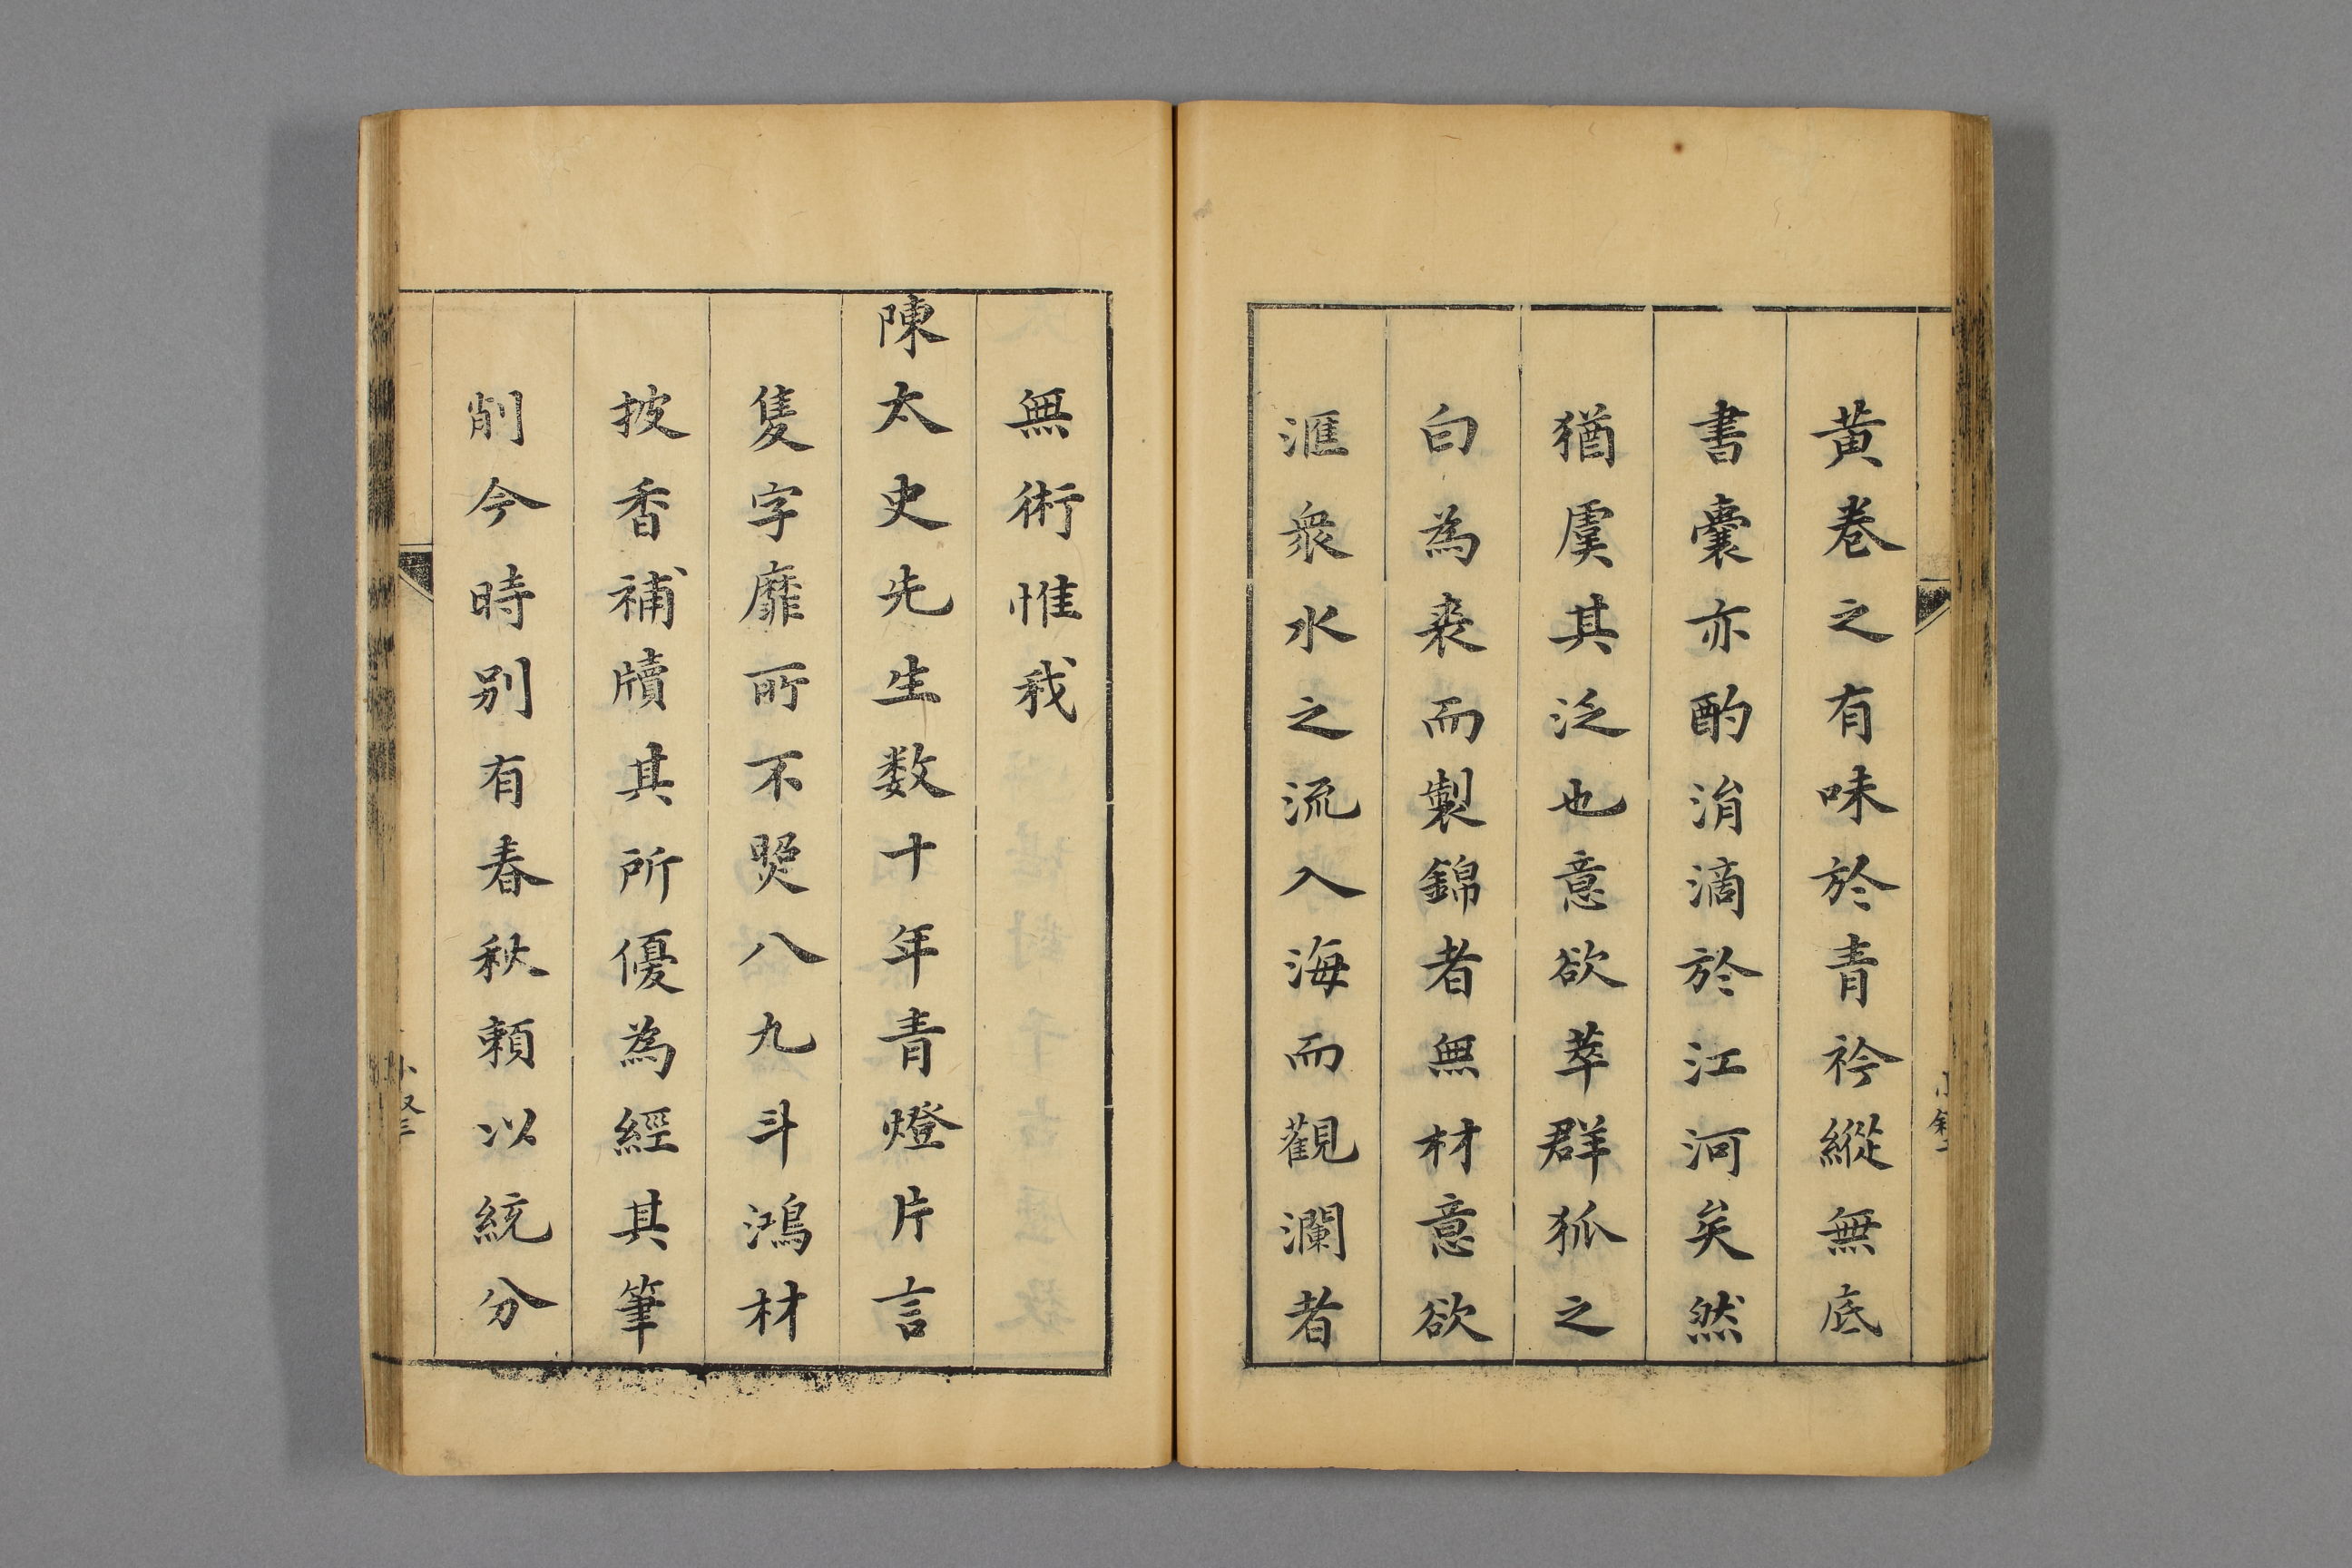 黄卷之有味於青衿縱無底
書囊亦酌涓滴於江河矣然
猶虞其泛也意欲萃群狐之
白為裘而製錦者無材意欲
滙衆水之流入海而觀瀾者
無術惟我
陳太史先生数十年青燈片言
隻字靡所不煛八九斗鴻材
披香補牘其所優為經其筆
削今時别有春秋頼以統分